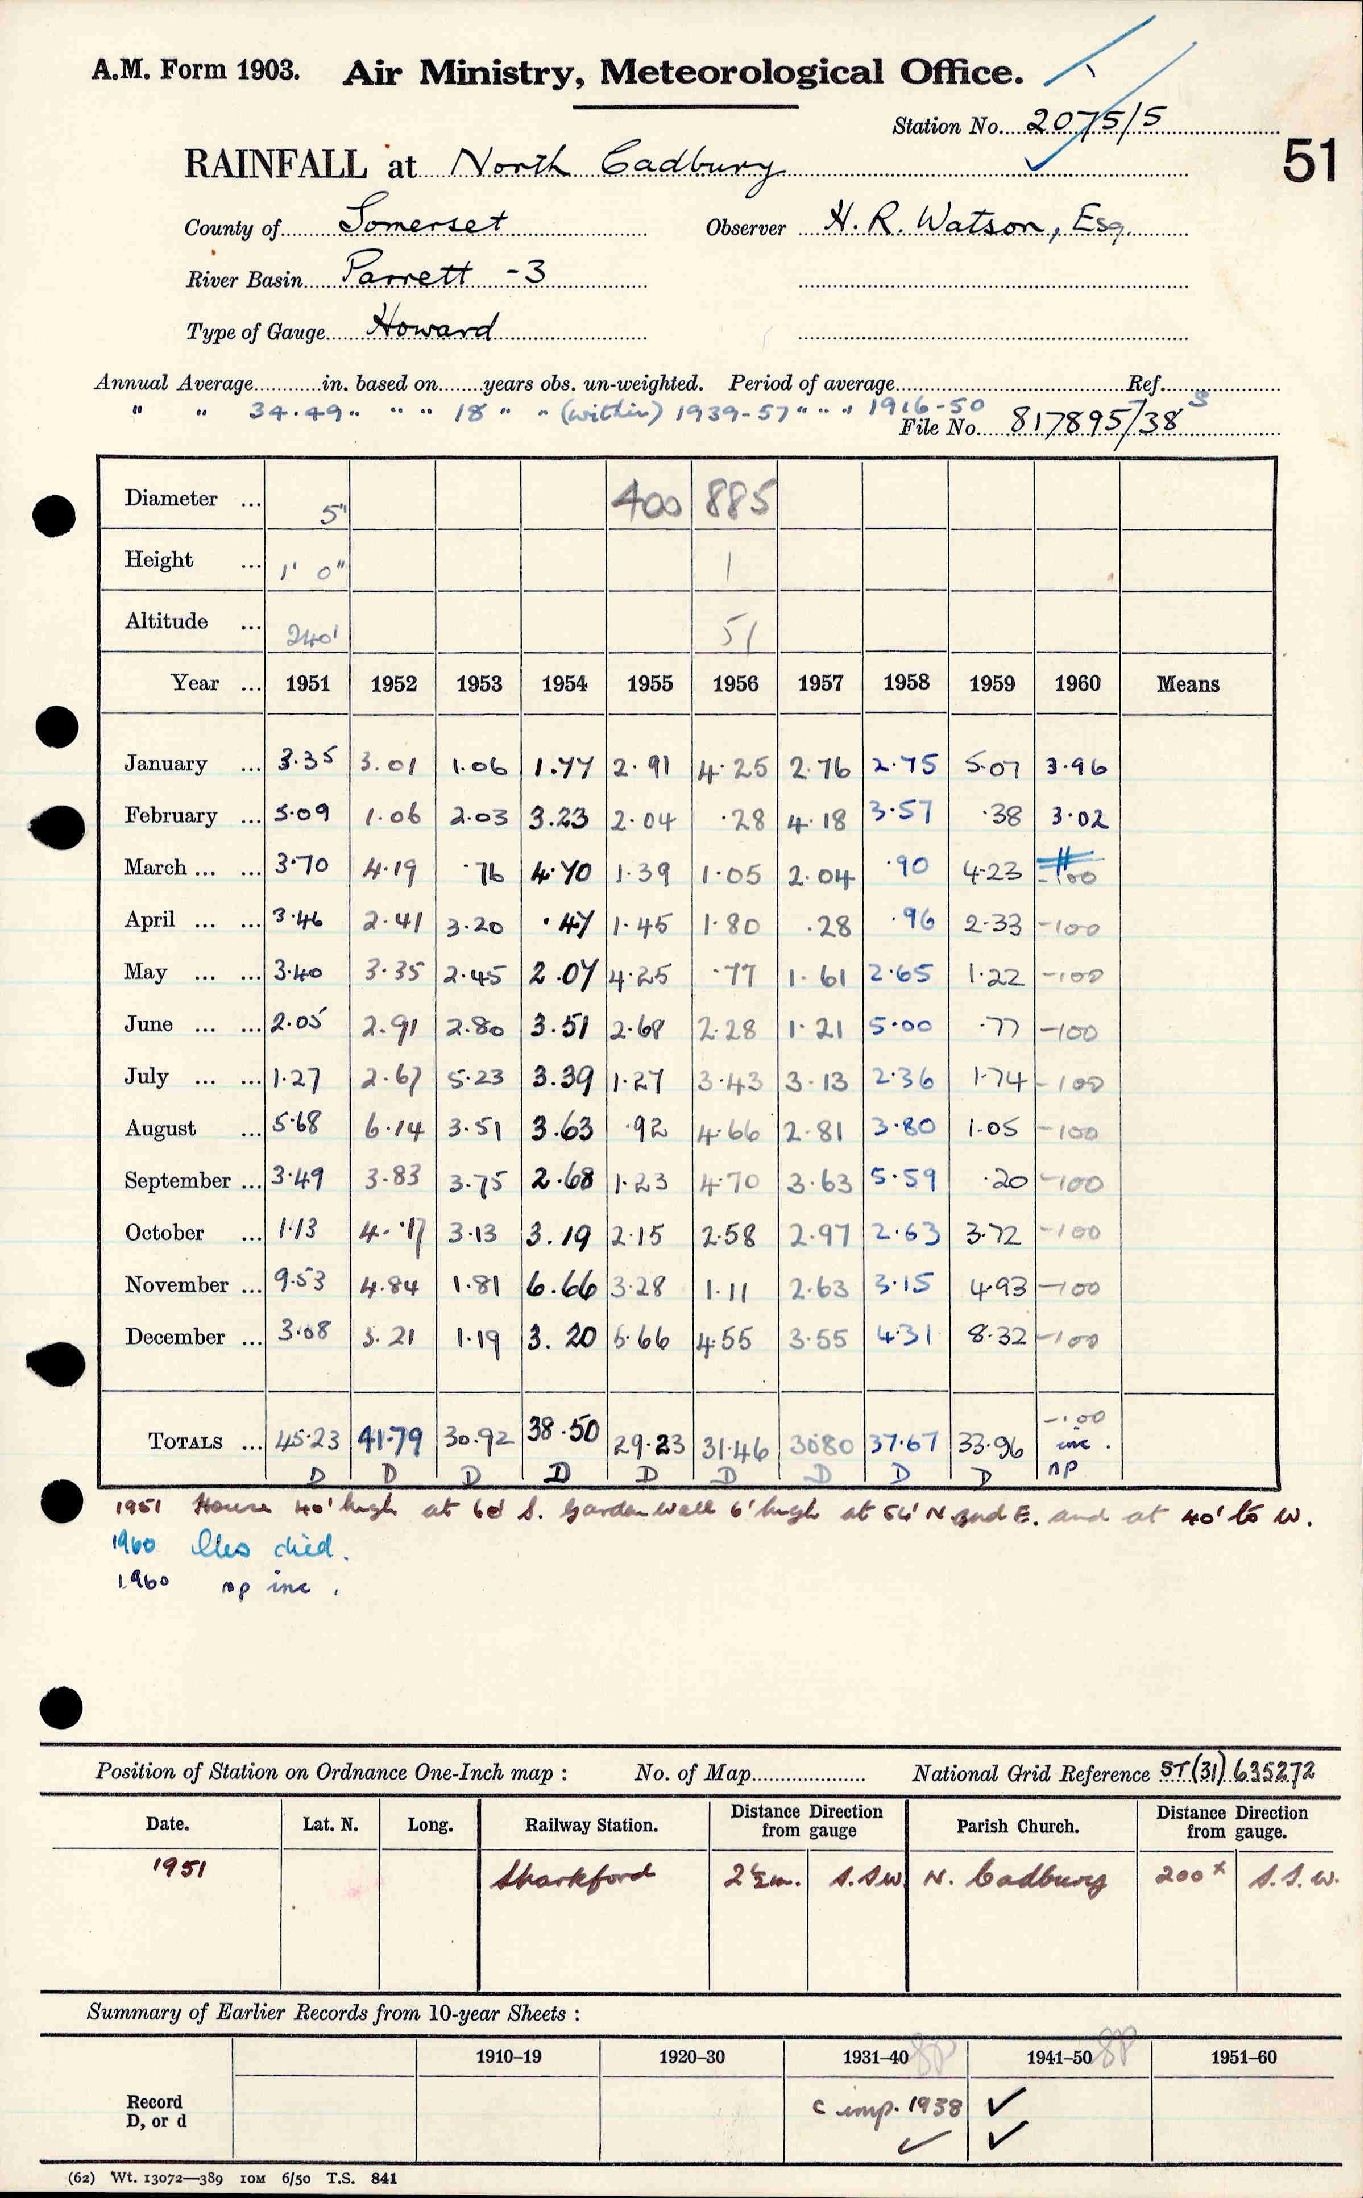 A.M. Form 1903. Air Ministry, Meteorological Office.
Station No. 2075/5
51
RAINFALL at North Cadbury
County of Somerset Observer H. R. Watson, Esq.
River Basin Parrett - 3
Type of Gauge Howard
Annual Average in. based on years obs. un-weighted. Period of average Ref.
" " 34.49 " " " 18 " " (within) 1939-57 " " " 1916-50 S
File No. 817895/38
Diameter ... 5" 400 885
Height ... 1' 0" 1
Altitude ... 240' 51
Year ... 1951 1952 1953 1954 1955 1956 1957 1958 1959 1960 Means
January ... 3.35 3.01 1.06 1.77 2.91 4.25 2.76 2.75 5.07 3.96
February ... 5.09 1.06 2.03 3.23 2.04 .28 4.18 3.57 .38 3.02
March ... ... 3.70 4.19 .76 4.70 1.39 1.05 2.04 .90 4.23 -100
April ... ... 3.46 2.41 3.20 .47 1.45 1.80 .28 .96 2.33 -100
May ... ... 3.40 3.35 2.45 2.07 4.25 .77 1.61 2.65 1.22 -100
June ... ... 2.05 2.91 2.80 3.51 2.68 2.28 1.21 5.00 .77 -100
July ... ... 1.27 2.67 5.23 3.39 1.27 3.43 3.13 2.36 1.74 -100
August ... 5.68 6.14 3.51 3.63 .92 4.66 2.81 3.80 1.05 -100
September ... 3.49 3.83 3.75 2.68 1.23 4.70 3.63 5.59 .20 -100
October ... 1.13 4.17 3.13 3.19 2.15 2.58 2.97 2.63 3.72 -100
November ... 9.53 4.84 1.81 6.66 3.28 1.11 2.63 3.15 4.93 -100
December ... 3.08 3.21 1.19 3.20 5.66 4.55 3.55 4.31 8.32 -100
TOTALS ... 45.23 41.79 30.92 38.50 29.23 31.46 30.80 37.67 33.96 -1.00 inc.
D D D D D D D D D np
1951 House 40' high at 60' S. Garden wall 6' high at 54' N and E. and at 40' to W.
1960 Obs died.
1960 np inc.
Position of Station on Ordnance One-Inch map : No. of Map National Grid Reference ST (31) 635272
Date. Lat. N. Long. Railway Station. Distance Direction from gauge Parish Church. Distance Direction from gauge.
1951 Sparkford 2½m. S.S.W. N. Cadbury 200x S.S.W.
Summary of Earlier Records from 10-year Sheets :
1910-19 1920-30 1931-40 SP 1941-50 SP 1951-60
Record D, or d c imp. 1938 ✓ ✓
✓
(62) Wt. 13072—389 10M 6/50 T.S. 841